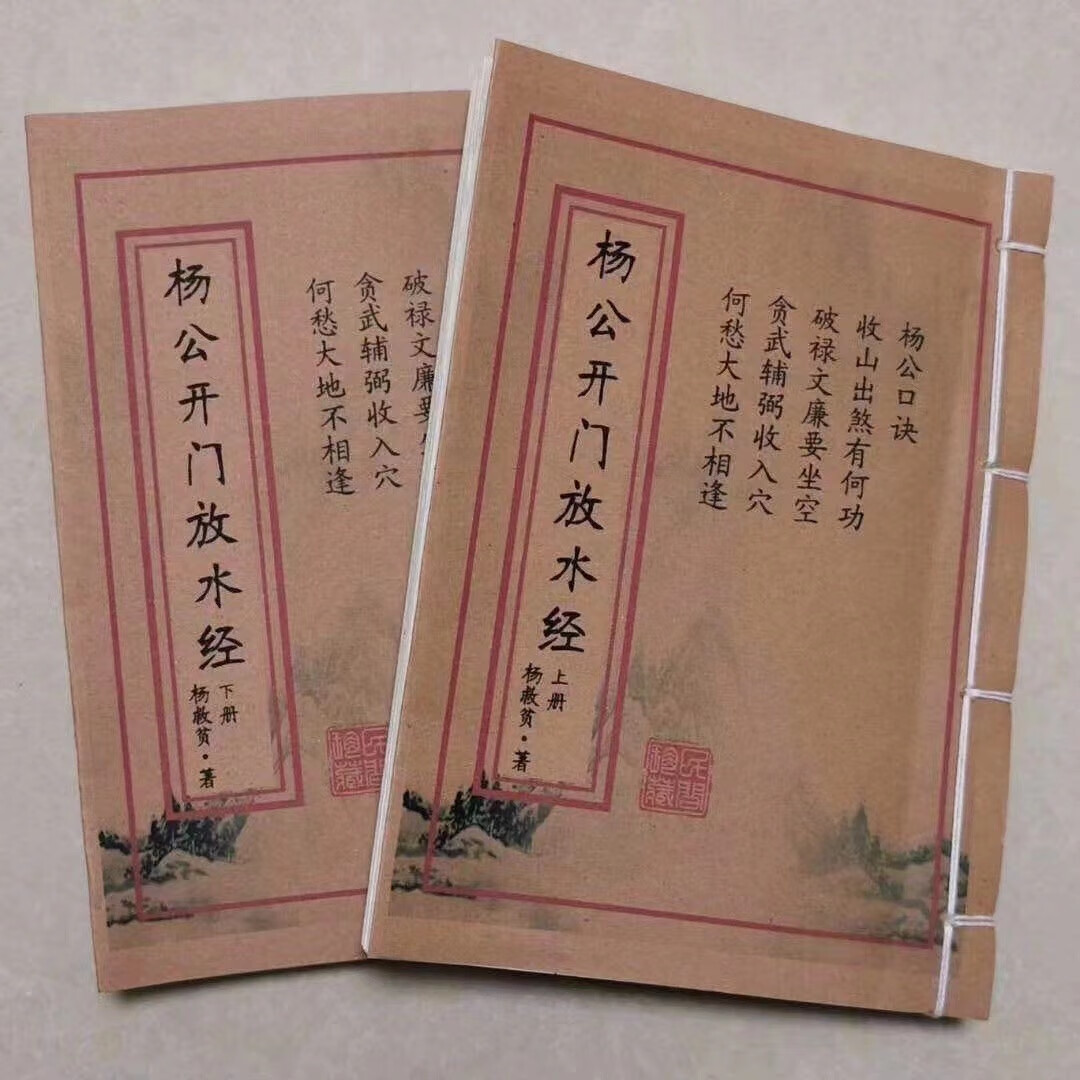 杨公口诀
收山出煞有何功
破禄文廉要坐空
贪武辅弼收入穴
何愁大地不相逢
杨公开门放水经
上册
杨救贫·著
民间珍藏
破禄文廉要
贪武辅弼收入穴
何愁大地不相逢
杨公开门放水经
下册
杨救贫·著